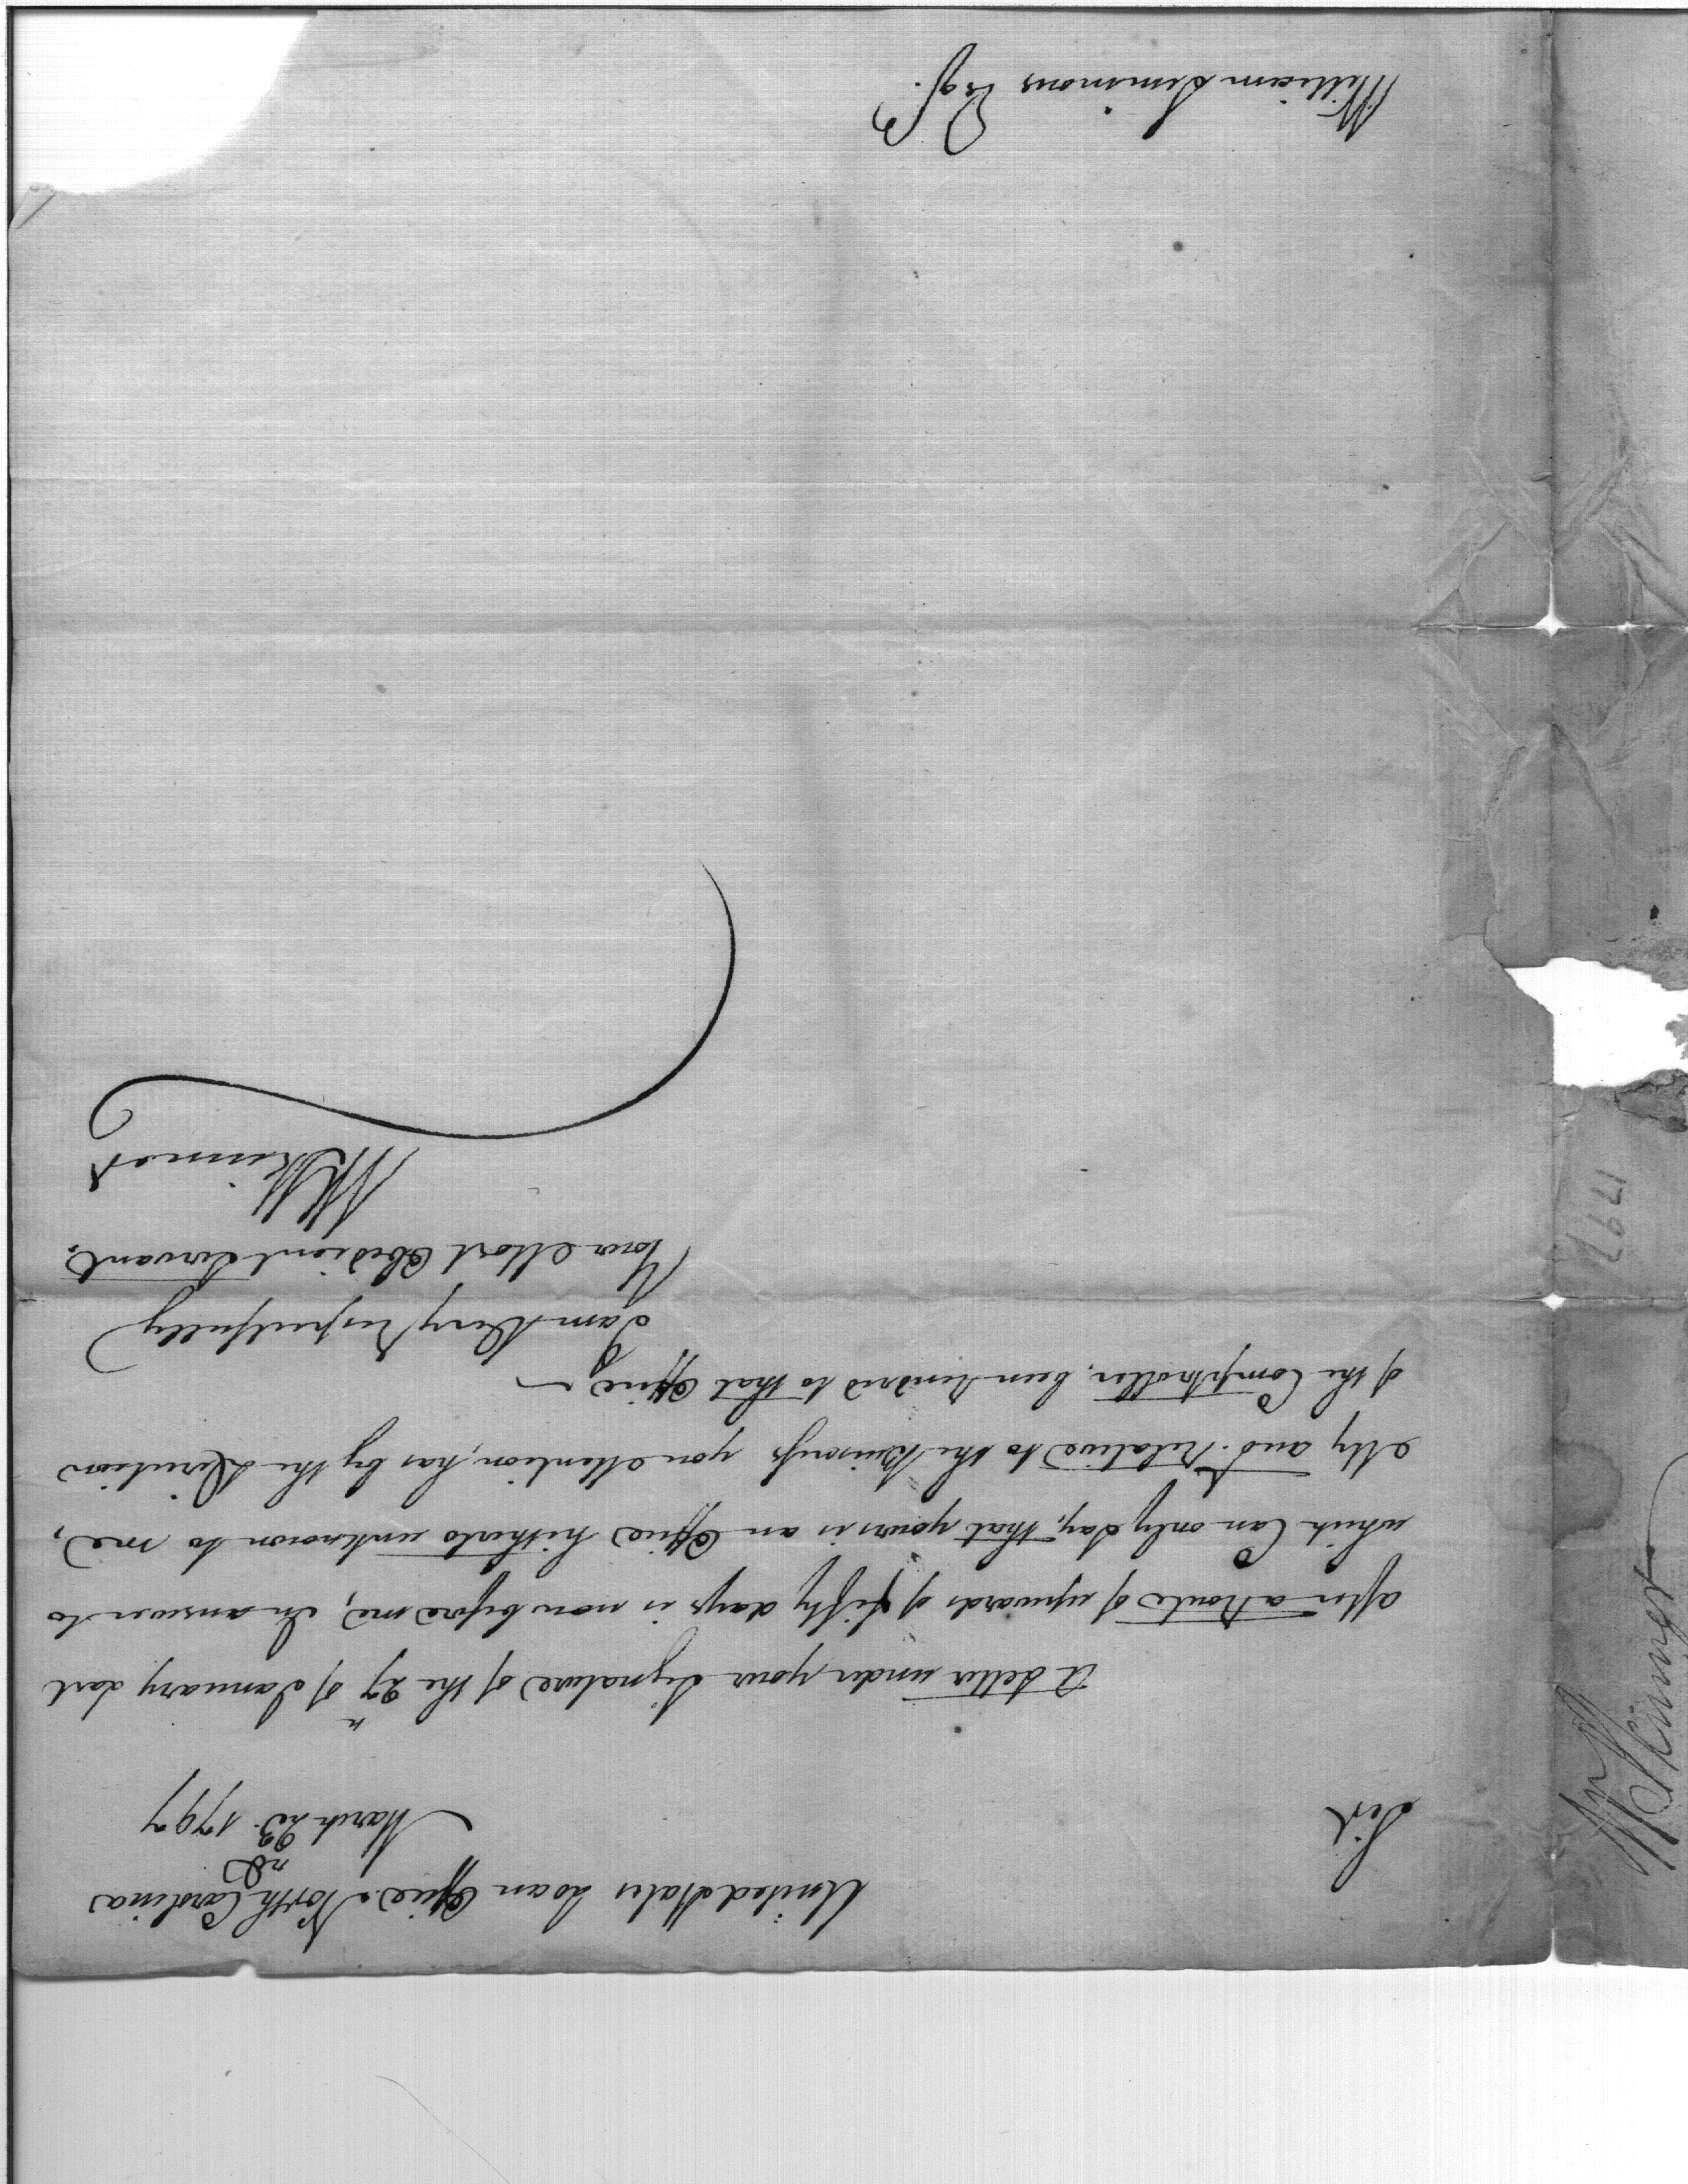 United States Loan Office North Carolina
March 23.rd 1797
Sir
A Letter under your Signature of the 27th of January last
after a Route of upwards of fifty days is now before me, In answer to
which Can only Say, that yours is an Office hitherto unknown to me,
My and Relative to the you Mention, has by the Direction
of the Comptroller, been to that Office
I am Very Respectfully
Your Most Obedient Servant.
W Skinner
William Simmons Esqr.
W Skinner
1797